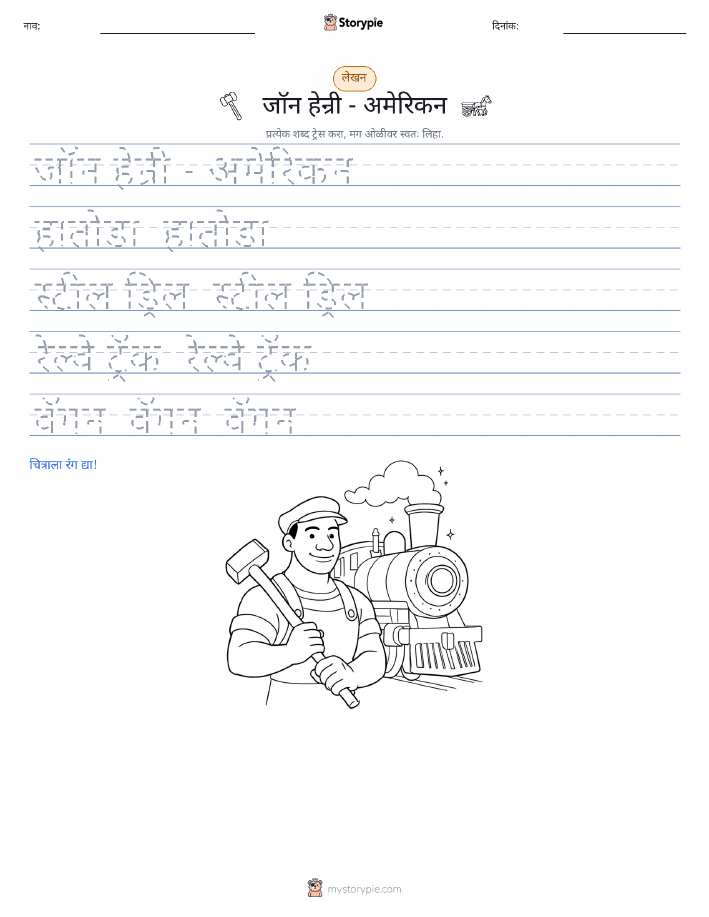 नाव:
Storypie
दिनांक:
लेखन
जॉन हेन्री - अमेरिकन
प्रत्येक शब्द ट्रेस करा, मग ओळीवर स्वतः लिहा.
जॉन हेन्री - अमेरिकन
हातोडा हातोडा
स्टील ड्रिल स्टील ड्रिल
रेल्वे ट्रॅक रेल्वे ट्रॅक
वॅगन वॅगन वॅगन
चित्राला रंग द्या!
mystorypie.com